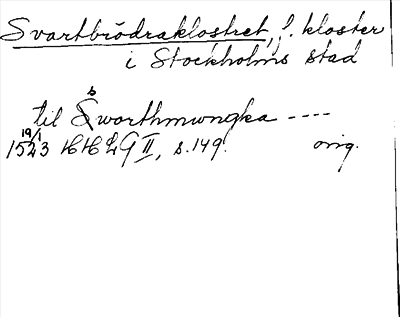 Svartbrödraklostret, f. kloster
i Stockholms stad
til Sworthmwngka ----
19/1
1523 HH LG II, s. 149. orig.